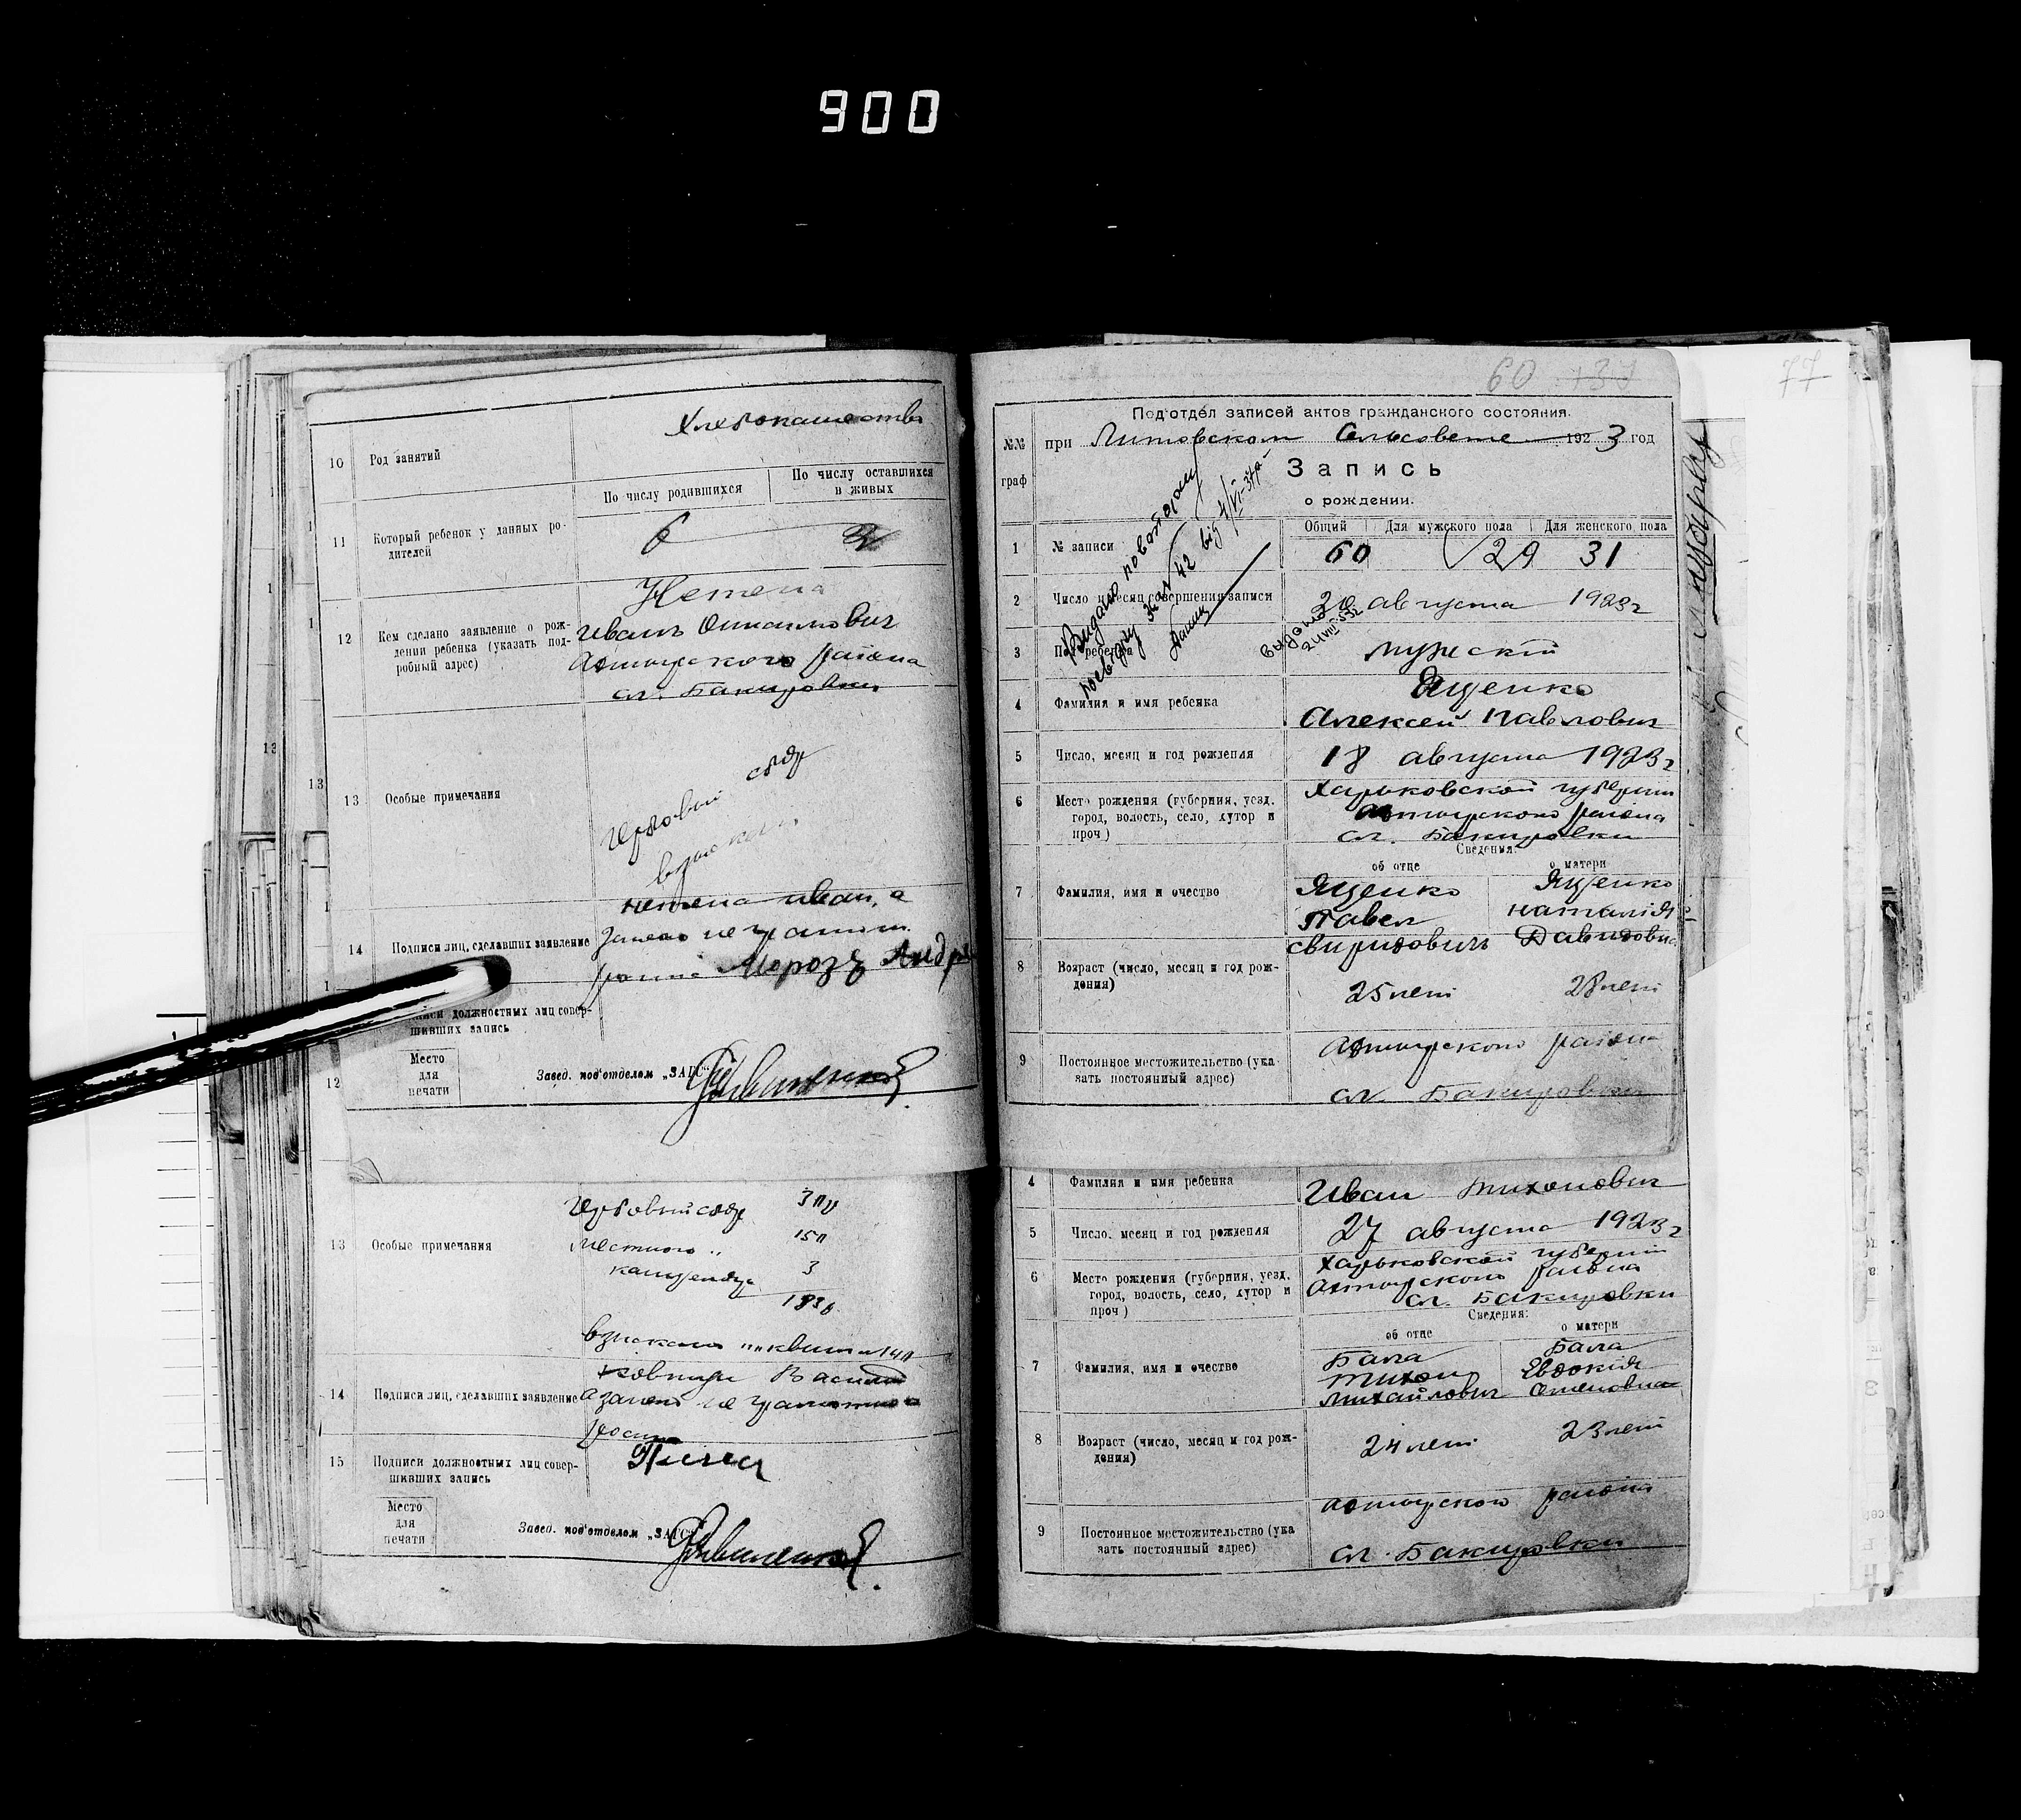 900
Хлебопашество
10 Род занятий
По числу родившихся
По числу оставшихся
в живых
11 Который ребенок у данных ро-
дителей
6 3
Нетеса
12 Кем сделано заявление о рож-
дении ребенка (указать под-
робный адрес)
Иван
Ахтырского района
сл. Бакировки
13 Особые примечания
Гербовый сбор
14 Подписи лиц, сделавших заявление
Иван, а
за него не грамот.
Мороз Андр
должностных лиц совер-
шивших запись
Место
для
печати
Завед. под'отделом „ЗАГС"
12
Гербовый сбор 3
местного „ 15
канцеляр 3
13 Особые примечания
взыскано
14 Подписи лиц, сделавших заявление
Васили
а за него не грамотного
15 Подписи должностных лиц совер-
шивших запись
Место
для
печати
Завед. под'отделом „ЗАГС"
60
77
Под'отдел записей актов гражданского состояния.
№№
граф
при Литовском Сельсовете 1923 год
Запись
о рождении.
Видано повторну
42 від 4/VI-37р
выдано
24 VIII-53г
Общий Для мужского пола Для женского пола
1 № записи 60 29 31
2 Число и месяц совершения записи 20 августа 1923 г
3 Пол ребенка мужский
4 Фамилия и имя ребенка
Ященко
Алексей Павлович
5 Число, месяц и год рождения 18 августа 1923 г
6 Место рождения (губерния, уезд.
город, волость, село, хутор и
проч)
Харьковской губернии
Ахтырского района
сл. Бакировки
Сведения:
об отце о матери
7 Фамилия, имя и очество
Ященко Ященко
Павел Наталия
Свиридович Давидовна
8 Возраст (число, месяц и год рож-
дения)
25 лет 28 лет
9 Постоянное местожительство (ука
зать постоянный адрес)
Ахтырского района
сл. Бакировки
4 Фамилия и имя ребенка Иван Тихонович
5 Число, месяц и год рождения 27 августа 1923 г
6 Место рождения (губерния, уезд.
город, волость, село, хутор и
проч)
Харьковской губернии
Ахтырского района
сл. Бакировки
Сведения:
об отце о матери
7 Фамилия, имя и очество
Бала Бала
Тихон Евдокия
Михайлович Семеновна
8 Возраст (число, месяц и год рож-
дения)
24 лет 23 лет
9 Постоянное местожительство (ука
зать постоянный адрес)
Ахтырского района
сл. Бакировки